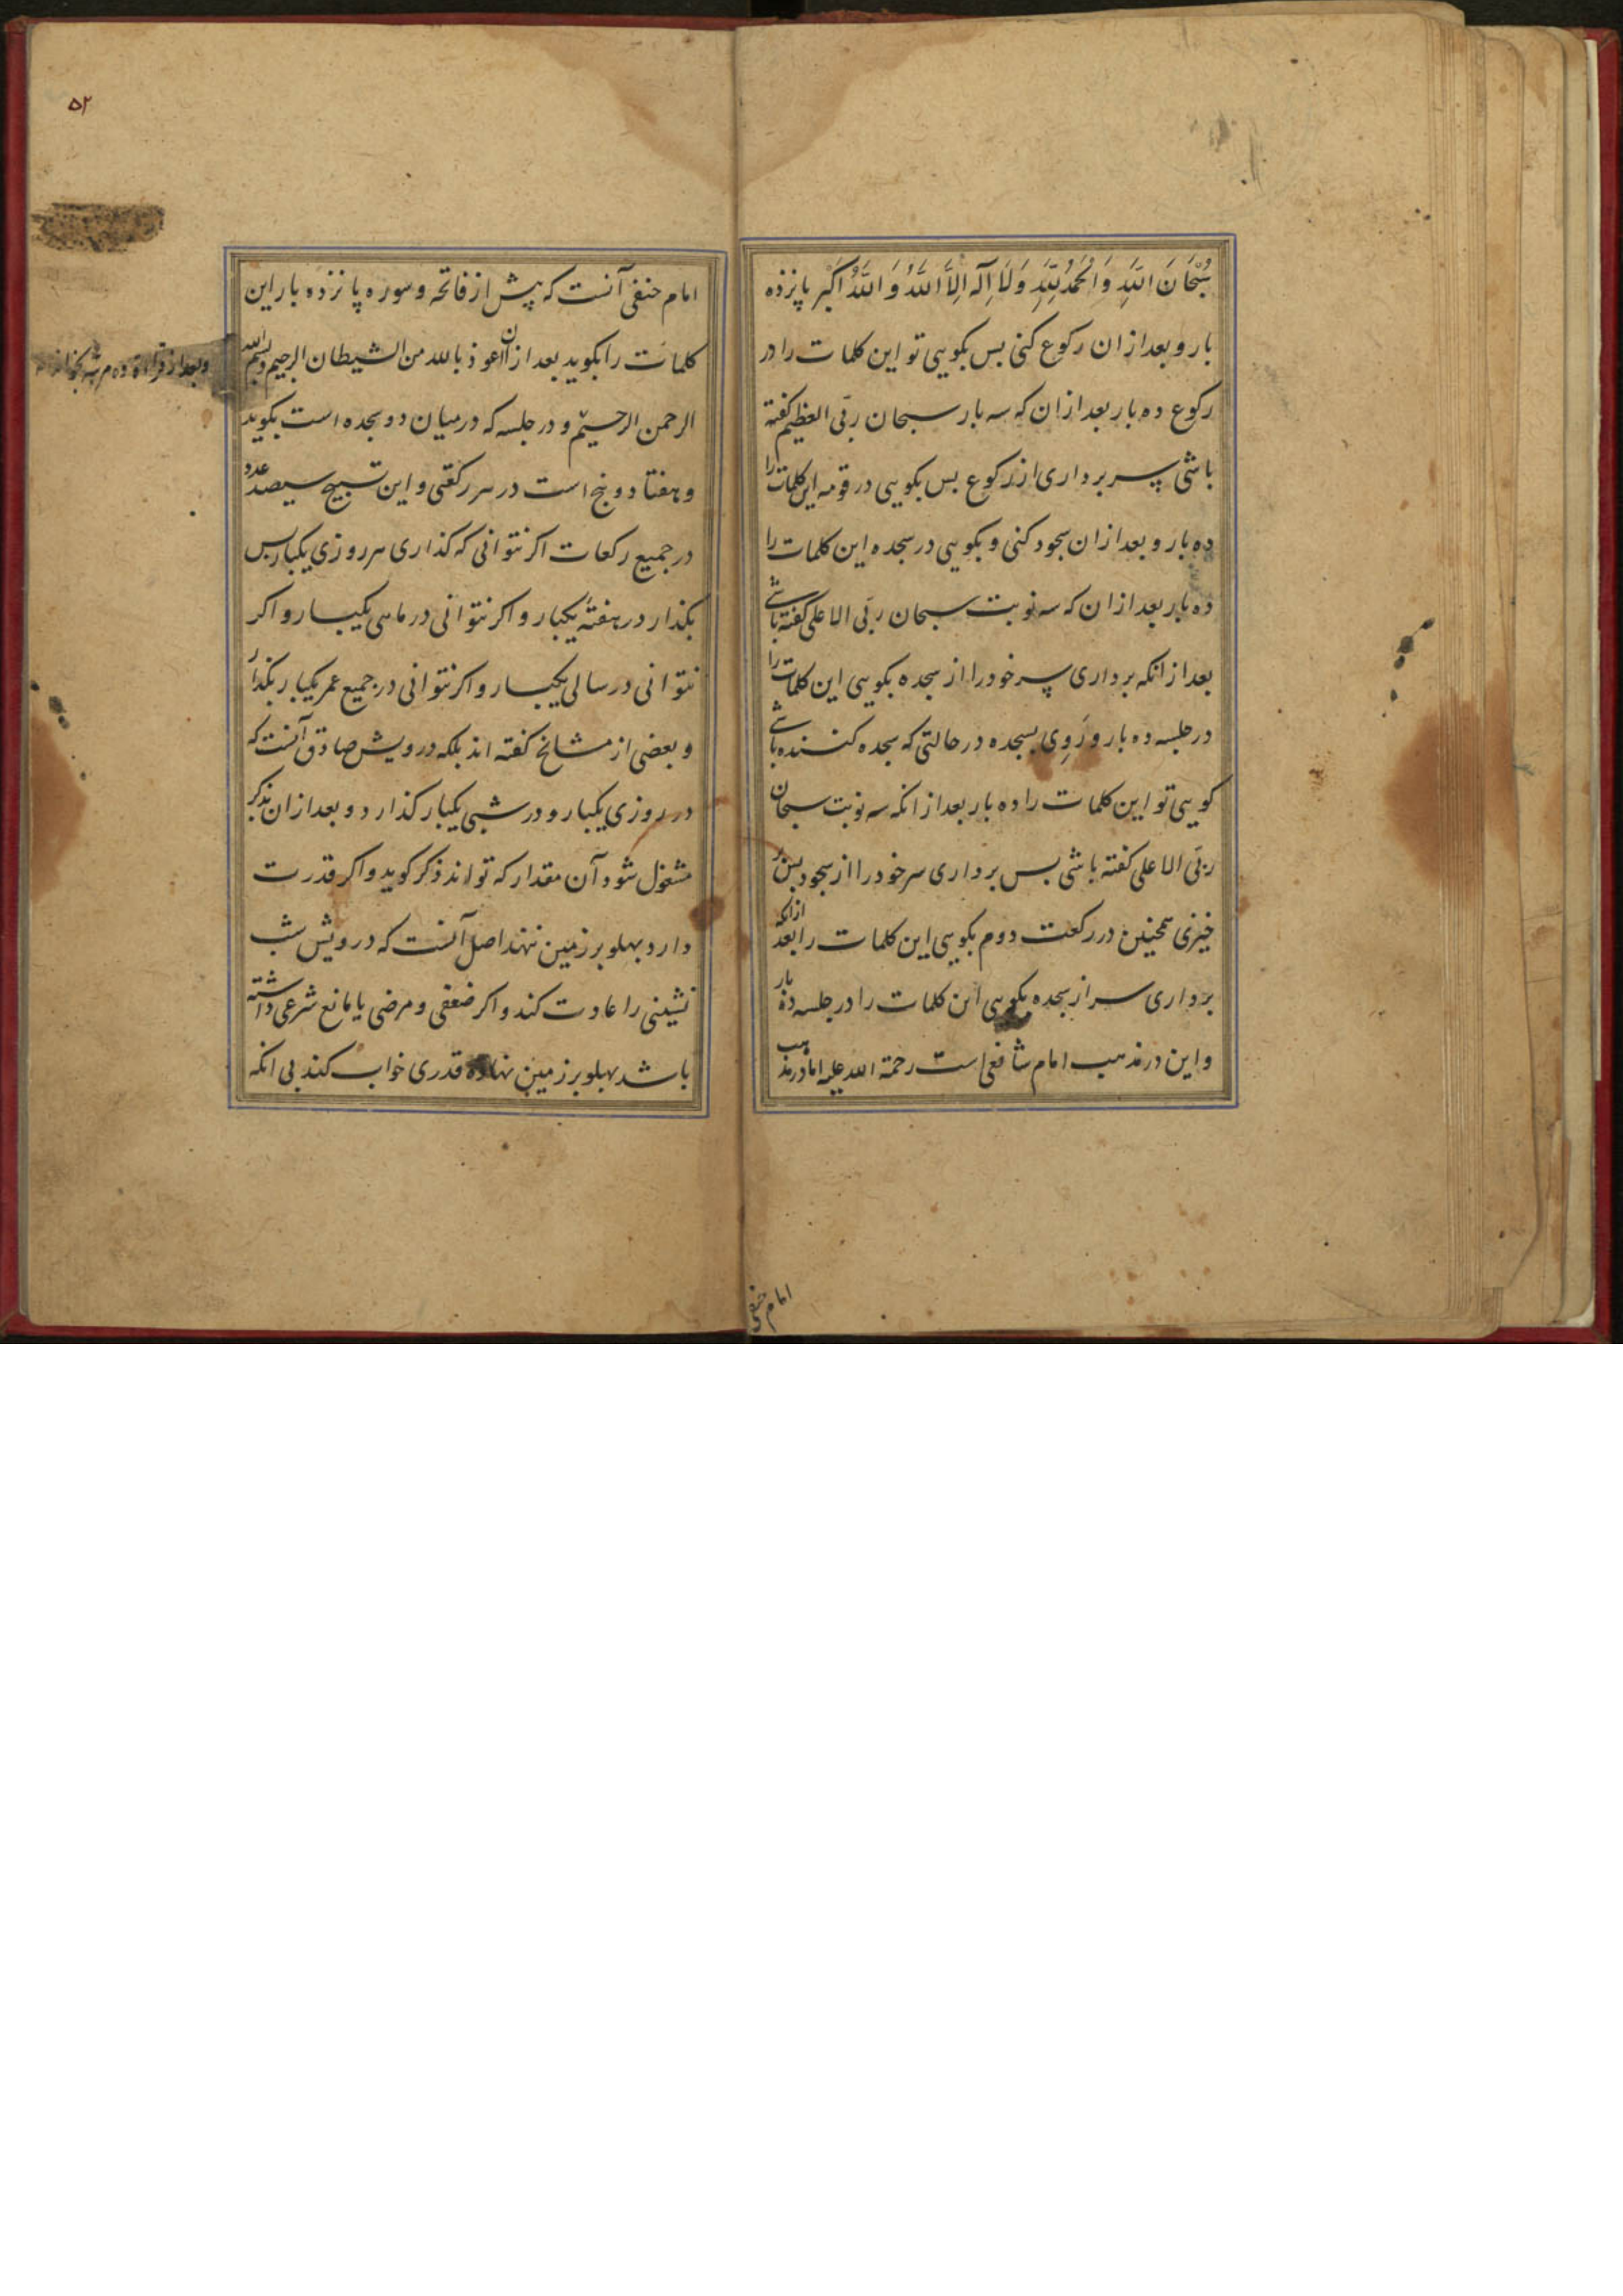 سُبْحَانَ اللّٰهِ وَ الْحَمْدُ لِلّٰهِ وَ لَا اِلٓهَ اِلَّا اللّٰهُ وَ اللّٰهُ اَكْبَر پانزده
بار و بعد از ان ركوع كنى بس بكويى تو اين كلمات را در
ركوع ده بار بعد از ان كه سه بار سبحان ربّى العظيم كفته
باشى پس سر بردارى از ركوع بس بكويى در قومه اين كلمات را
ده بار و بعد از ان سجود كنى و بكويى در سجده اين كلمات را
ده بار بعد از ان كه سه نوبت سبحان ربّى الاعلى گفته باشى
بعد از انكه بردارى سر خود را از سجده بكويى اين كلمات را
در جلسه ده بار و رَوِى بسجده در حالتى كه سجده كننده باشى
كويى تو اين كلمات را ده بار بعد از انكه سه نوبت سبحان
ربّى الاعلى كفته باشى بس بردارى سر خود را از سجود بس بر
خيزى همچنين در ركعت دوم بكويى اين كلمات را بعد از انكه
بردارى سر از سجده بكويى اين كلمات را در جلسه ده بار
و اين در مذهب امام شافعى است رحمة الله عليه اما در مذهب
امام حنفى
٥٢
امام حنفى آنست كه پيش از فاتحه و سوره پانزده بار اين
كلمات را بكويد بعد از ان اعوذ بالله من الشيطان الرجيم و بسم الله
الرحمن الرحيم و در جلسه كه در ميان دو سجده است بكويد
و هفتاد و پنج است در هر ركعتى و اين تسبيح سيصد عدد
در جميع ركعات اكر نتوانى كه كذارى هر روزى يكبار بس
بكذار در هفتهٔ يكبار و اكر نتوانى در ماهى يكبار و اكر
نتوانى در سالى يكبار و اكر نتوانى در جميع عمر يكبار بكذار
و بعضى از مشايخ كفته اند بلكه درويش صادق آنست كه
در روزى يكبار و در شبى يكبار كذارد و بعد از ان بذكر
مشغول شود آن مقدار كه تواند ذكر كويد و اكر قدرت
دارد پهلو بر زمين ننهد اصل آنست كه درويش شب
نشينى را عادت كند و اكر ضعفى و مرضى يا مانع شرعى داشته
باشد پهلو بر زمين نهاده قدرى خواب كند بى انكه
و بعد از قراءة ده مرتبه